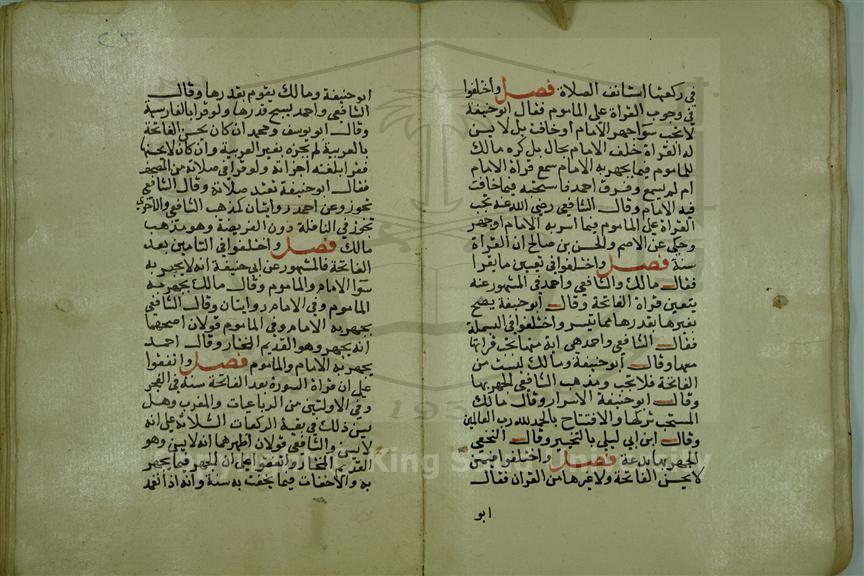 في ركعتها استانف الصلاة فصل واختلفوا
في وجوب القراة على الماموم فقال ابوحنيفة
لا تجب سوا جهر الامام او خافت بل لا يسن
له القراة خلف الامام بحال بل كره مالك
للماموم فيما يجهر به الامام سمع قراة الامام
ام لم يسمع وفرق احمد فاستحبه فيما خافت
فيه الامام وقال الشافعي رضي الله عنه تجب
القراة على الماموم فيما اسر به الامام او جهر
وحكي عن الاصم والحسن بن صالح ان القراة
سنة فصل واختلفوا في تعيين ما يقرا
فقال مالك والشافعي واحمد في المشهور عنه
يتعين قراة الفاتحة وقال أبوحنيفة يصح
بغيرها بقدرها مما تيسر واختلفوا في البسملة
فقال الشافعي واحد هي اية منها تجب قراتها
معها وقال أبوحنيفة ومالك ليست من
الفاتحة فلا تجب ومذهب الشافعي الجهر بها
وقال ابوحنيفة الاسرار وقال مالك
المستحب تركها والافتتاح بالحمد لله رب العالمين
وقال ابن ابي ليلى بالتخيير وقال النخعي
الجهر بها بدعة فصل واختلفوا فيمن
لا يحسن الفاتحة ولا غيرها من القران فقال
ابو
ابوحنيفة ومالك يقوم بقدرها وقال
الشافعي واحمد يسبح قدرها ولو قرا بالفارسية
وقال ابويوسف ومحمد ان كان يحسن الفاتحة
بالعربية لم يجزه بغير العربية وان كان لا يحسنها
فقرا بلغته اجزاته ولو قرا في صلاته من المصحف
فقال ابوحنيفة تفسد صلاته وقال الشافعي
تجوز وعن احمد روايتان كمذهب الشافعي والاخرى
تجوز في النافلة دون الفريضة وهو مذهب
مالك فصل واختلفوا في التامين بعد
الفاتحة فالمشهور عن ابي حنيفة انه لا يجهر به
سوا الامام والماموم وقال مالك يجهر به
الماموم وفي الامام روايتان وقال الشافعي
يجهر به الامام وفي الماموم قولان اصحهما
انه يجهر وهو القديم المختار وقال احمد
يجهر به الامام والماموم فصل واتفقوا
على ان قراة السورة بعد الفاتحة سنة في الفجر
وفي الاولتين من الرباعيات والمغرب وهل
يسن ذلك في بقية الركعات الثلاثة على انه
لا يسن والشافعي قولان اظهرهما انه لا يسن وهو
القديم المختار واتفقوا على ان الجهر فيما يجهر
به والاخفات فيما يخفت به سنة وانه اذا تعمد